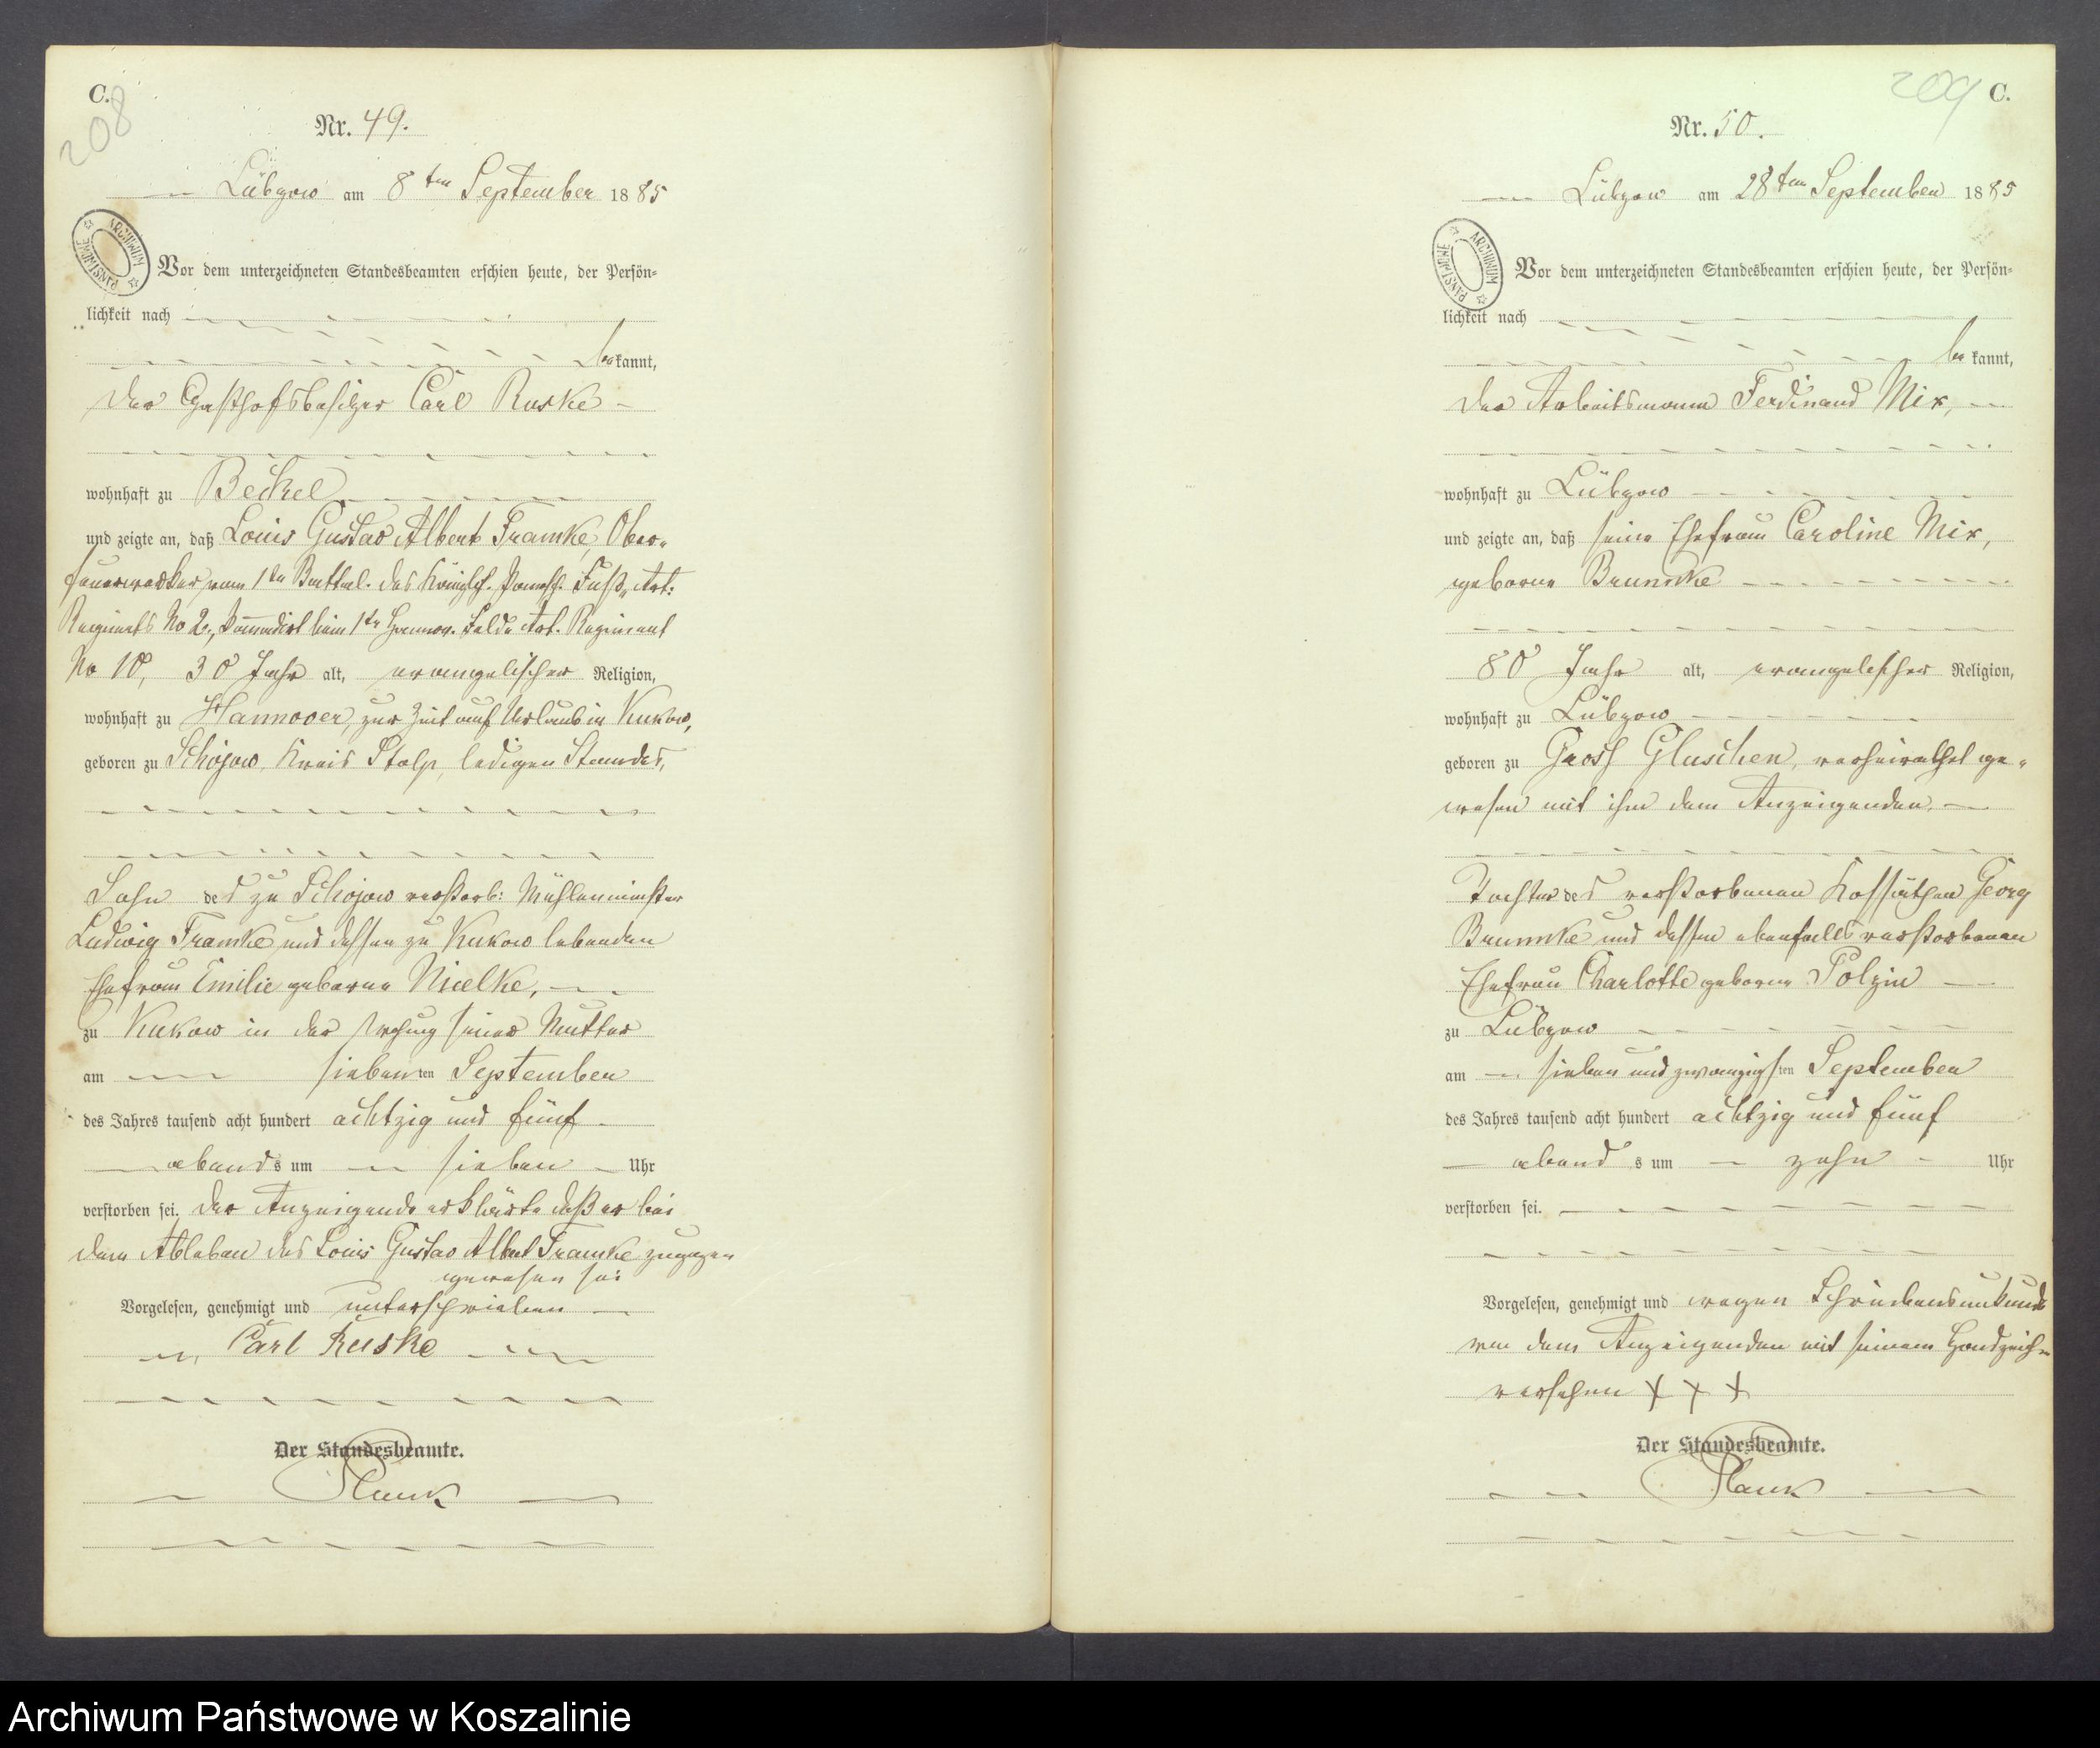 C.
208
Nr. 49.
Lübzow am 8ten September 1885
ARCHIWUM PAŃSTWOWE
Vor dem unterzeichneten Standesbeamten erschien heute, der Persön=
lichkeit nach
bekannt,
der Gasthofsbesitzer Carl Ruske
wohnhaft zu Beckel
und zeigte an, daß Louis Gustav Albert Framke, Ober-
feuerwerker vom 1ten Battal. des Königlch. Pomsch. Fuß-Art:
Regiments No 2., kommdirt beim 1ten Hannov. Feld-Art. Regiment
No 10, 30 Jahr alt, evangelischer Religion,
wohnhaft zu Hannover, zur Zeit auf Urlaub in Kukow,
geboren zu Schojow, Kreis Stolp, ledigen Standes,
Sohn des zu Schojow verstorb: Mühlenmeister
Ludwig Framke und dessen zu Kukow lebenden
Ehefrau Emilie geborne Mielke,
zu Kukow in der seiner Mutter
am siebenten September
des Jahres tausend acht hundert achtzig und fünf
abends um sieben Uhr
verstorben sei. Der Anzeigende erklärte daß er bei
dem Ableben des Louis Gustav Albert Framke zugegen
gewesen sei
Vorgelesen, genehmigt und unterschrieben
Carl Ruske
Der Standesbeamte.
C.
209
Nr. 50.
Lübzow am 28ten September 1885
ARCHIWUM PAŃSTWOWE
Vor dem unterzeichneten Standesbeamten erschien heute, der Persön=
lichkeit nach
bekannt,
der Arbeitsmann Ferdinand Mix,
wohnhaft zu Lübzow
und zeigte an, daß seine Ehefrau Caroline Mix,
geborne Brummke
80 Jahr alt, evangelischer Religion,
wohnhaft zu Lübzow
geboren zu Gross Gluschen, verheirathet ge-
wesen mit ihm dem Anzeigenden.
Tochter des verstorbenen Kossäthen Georg
Brummke und dessen ebenfalls verstorbenen
Ehefrau Charlotte geborne Polzin
zu Lübzow
am sieben und zwanzigsten September
des Jahres tausend acht hundert achtzig und fünf
abends um zehn Uhr
verstorben sei.
Vorgelesen, genehmigt und wegen Schreibensunkunde
von dem Anzeigenden mit seinem Handzeichen
versehen + + +
Der Standesbeamte.
Archiwum Państwowe w Koszalinie